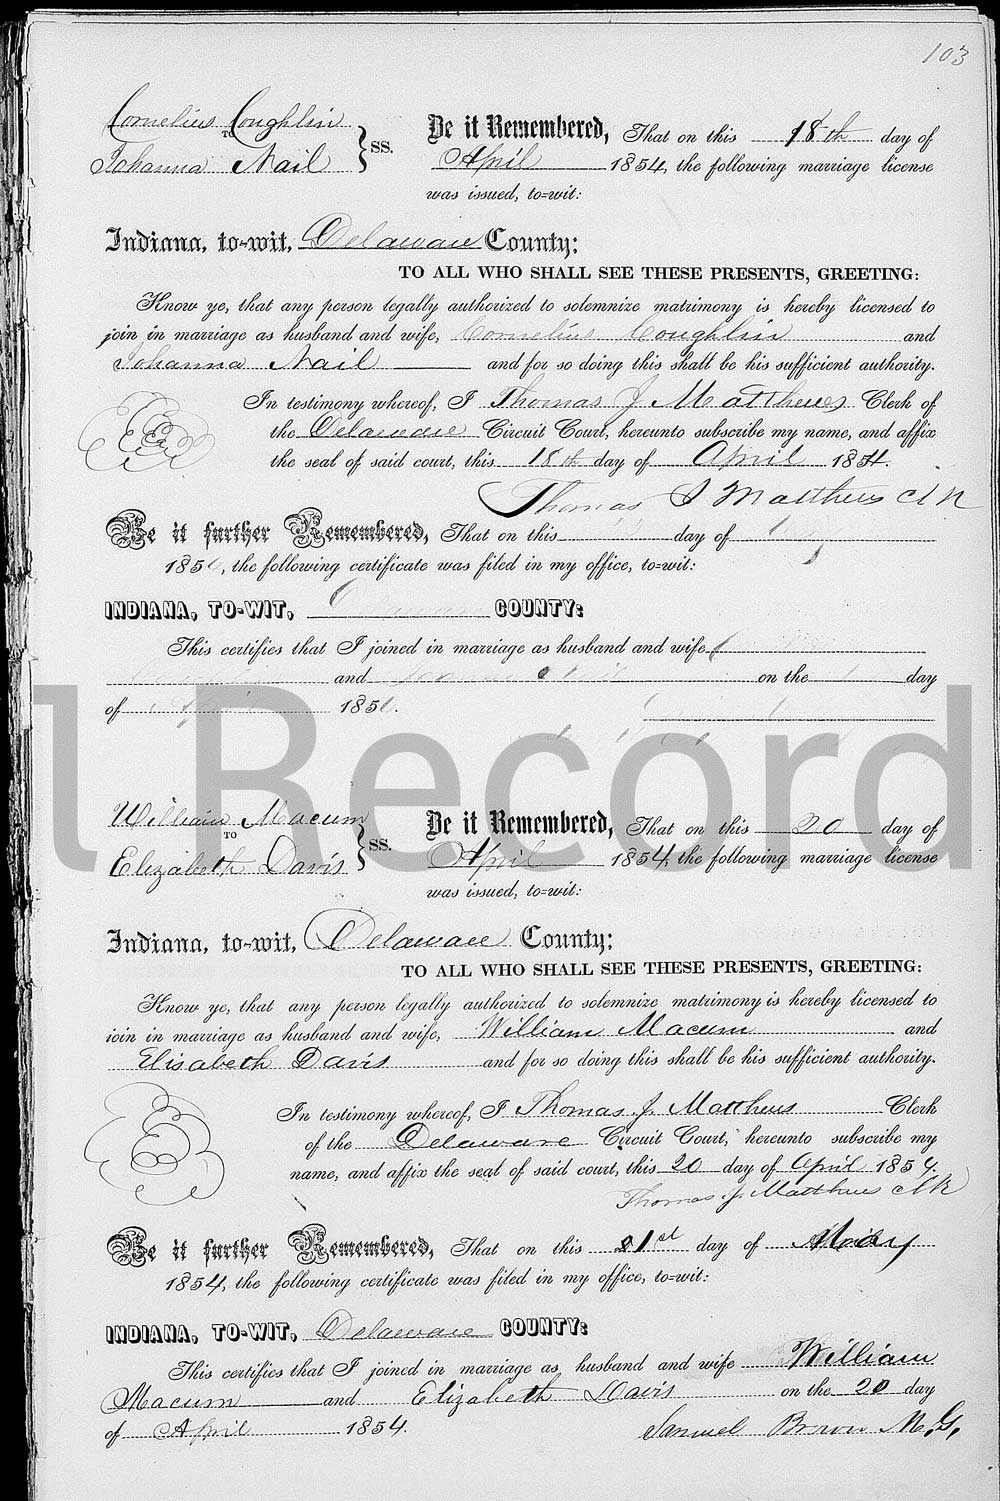 103
Cornelius Coughlin
TO
Johanna Nail
SS.
Be it Remembered, That on this 18th day of
April 1854, the following marriage license
was issued, to=wit:
Indiana, to-wit, Delaware County;
TO ALL WHO SHALL SEE THESE PRESENTS, GREETING:
Know ye, that any person legally authorized to solemnize matrimony is hereby licensed to
join in marriage as husband and wife, Cornelius Coughlin and
Johanna Nail and for so doing this shall be his sufficient authority.
In testimony whereof, I Thomas J Matthews Clerk of
the Delaware Circuit Court, hereunto subscribe my name, and affix
the seal of said court, this 18th day of April 1854.
Thomas J Matthews Clk
Be it further Remembered, That on this day of
185, the following certificate was filed in my office, to=wit:
INDIANA, TO-WIT, Delaware COUNTY:
This certifies that I joined in marriage as husband and wife
and on the day
of 185.
l Record
William Macum
TO
Elizabeth Davis
SS.
Be it Remembered, That on this 20 day of
April 1854, the following marriage license
was issued, to=wit:
Indiana, to-wit, Delaware County;
TO ALL WHO SHALL SEE THESE PRESENTS, GREETING:
Know ye, that any person legally authorized to solemnize matrimony is hereby licensed to
join in marriage as husband and wife, William Macum and
Elisabeth Davis and for so doing this shall be his sufficient authority.
In testimony whereof, I Thomas J. Matthews Clerk
of the Delaware Circuit Court, hereunto subscribe my
name, and affix the seal of said court, this 20 day of April 1854.
Thomas J Matthews Clk
Be it further Remembered, That on this 21st day of May
1854, the following certificate was filed in my office, to=wit:
INDIANA, TO-WIT, Delaware COUNTY:
This certifies that I joined in marriage as husband and wife William
Macum and Elizabeth Davis on the 20 day
of April 1854.
Samuel Brown M.G.